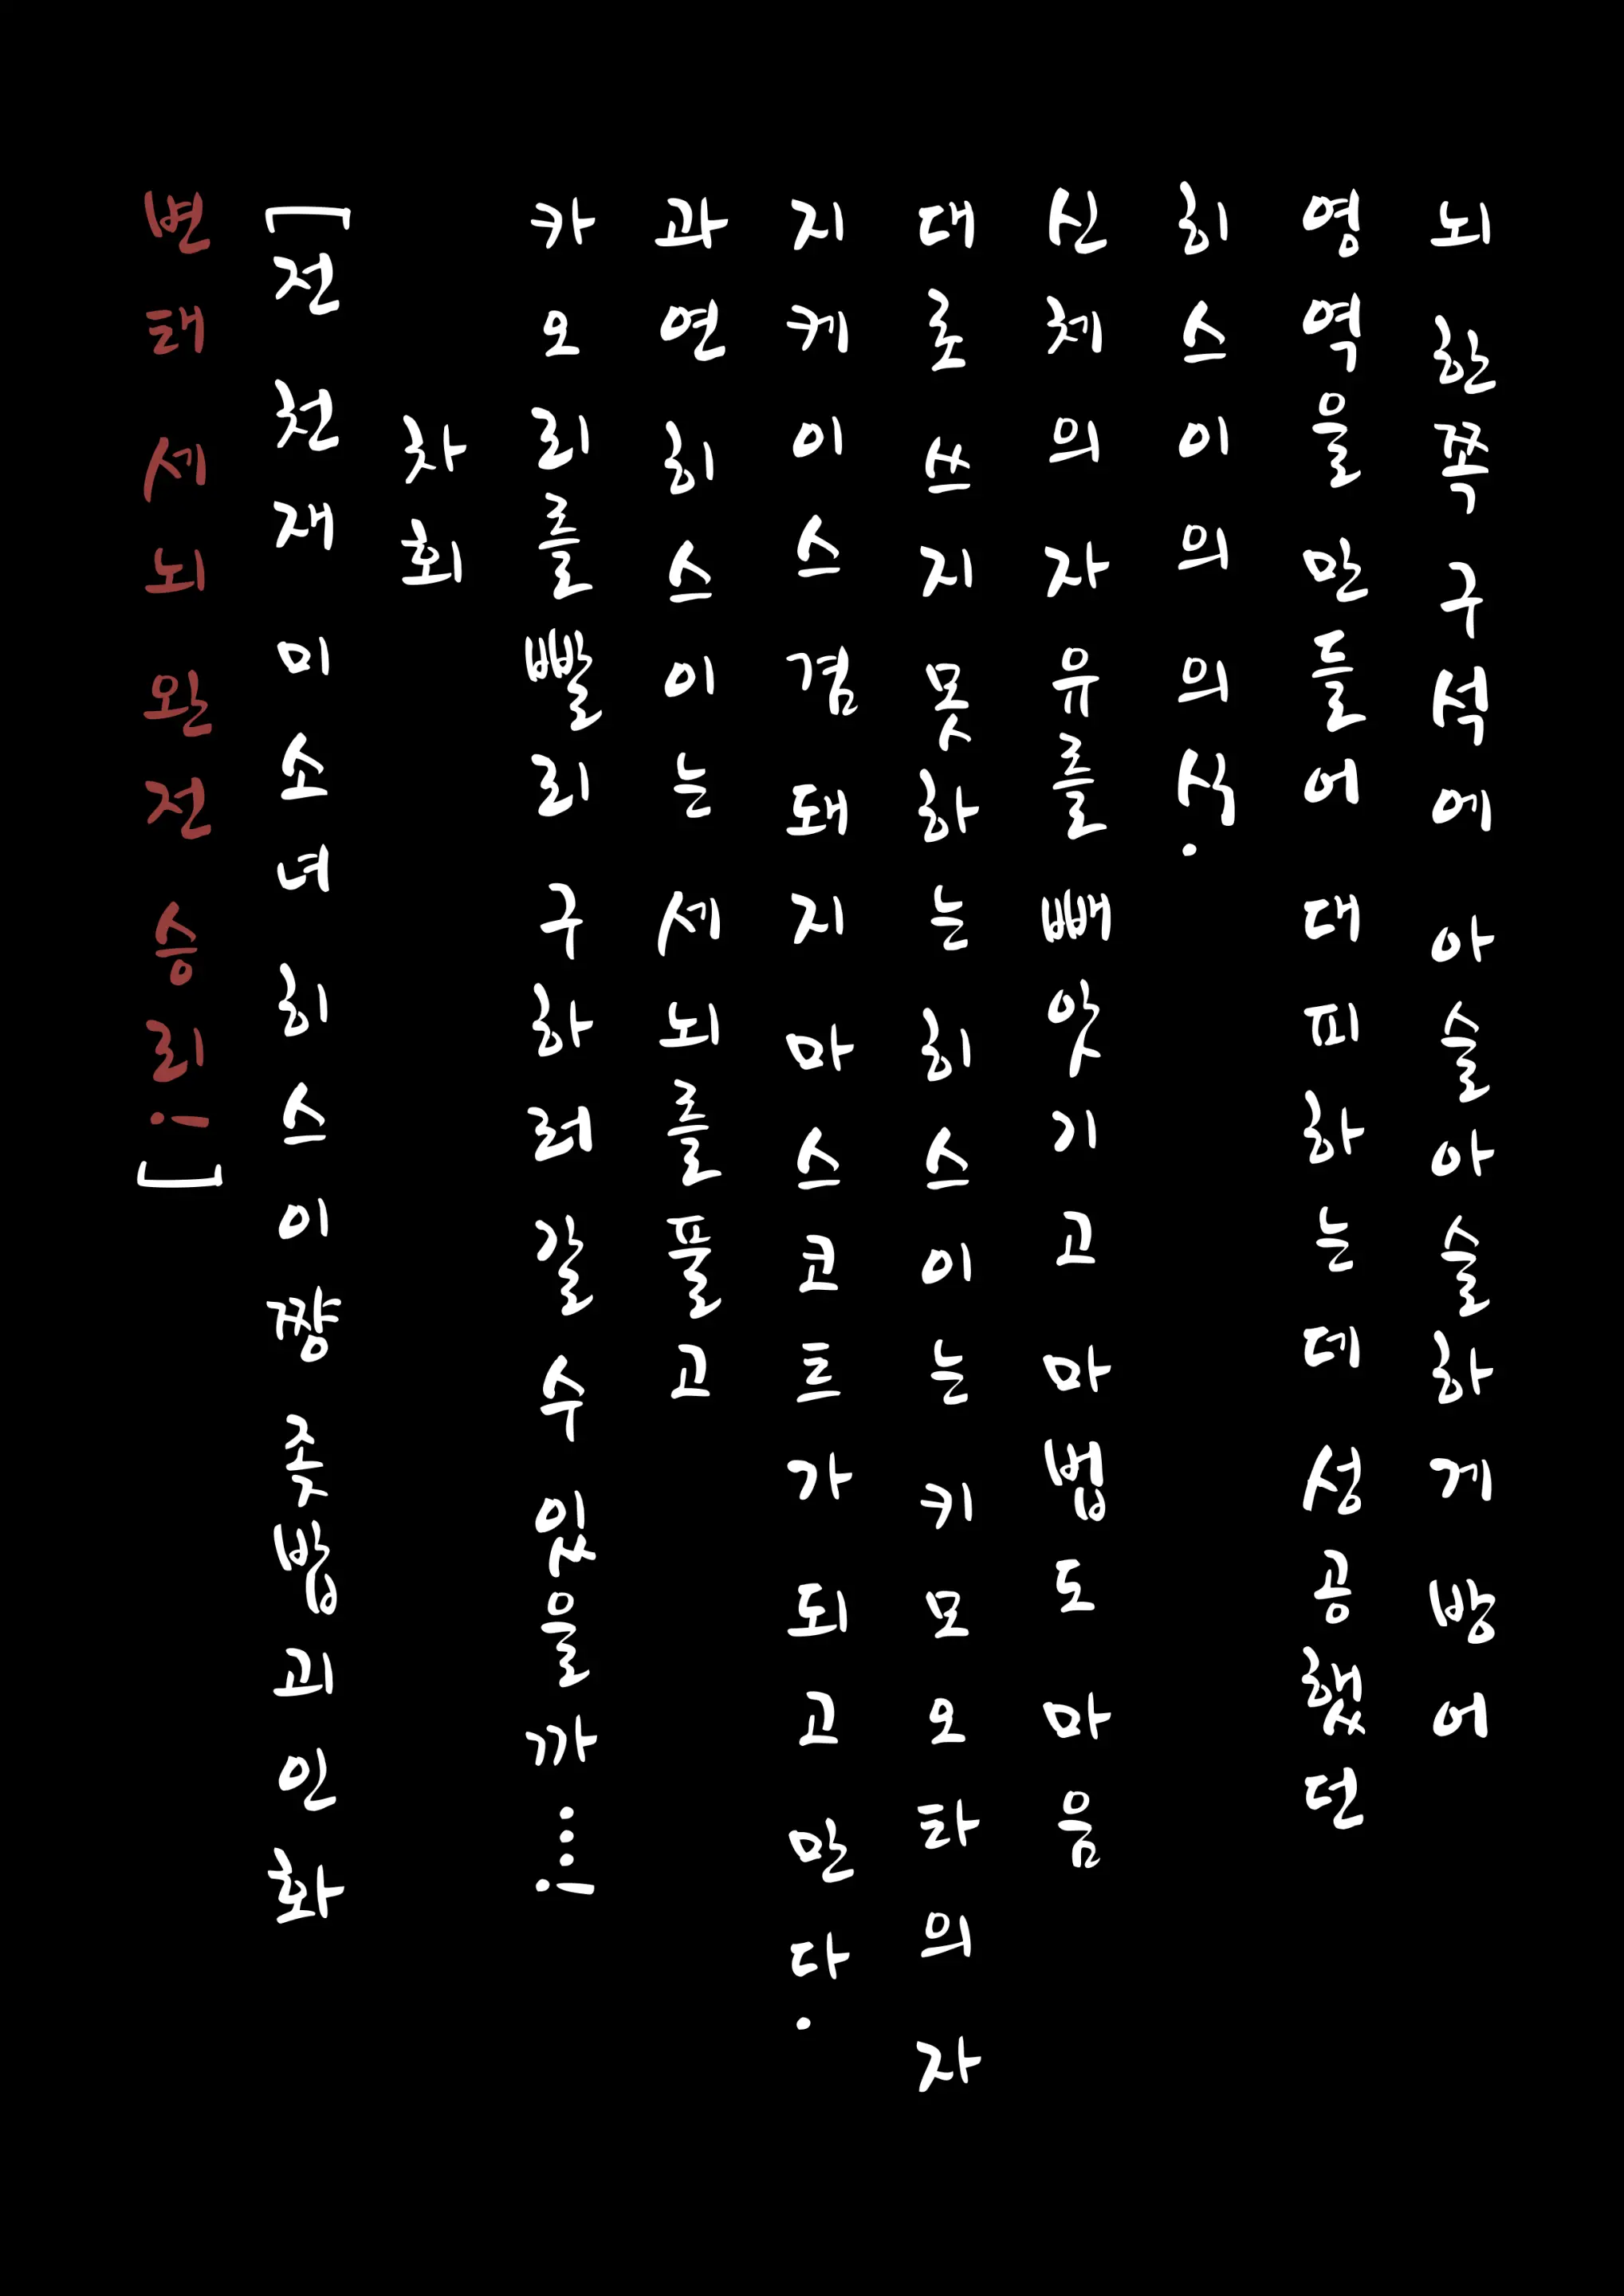 뇌 한쪽 구석에 아슬아슬하게 방어
영역을 만들어 대피하는데 성공했던
히스이의 의식.
신체의 자유를 빼앗기고 마법도 마음
대로 쓰지 못하는 히스이는 키모오타의 자
지케이스 겸 돼지 마스코트가 되고 만다.
과연 히스이는 세뇌를 풀고
카오리를 빨리 구하러 갈 수 있을까…!
차회
[전 천재 미소녀 히스이쨩 좆밥 괴인화
변태 세뇌 완전 승리!]